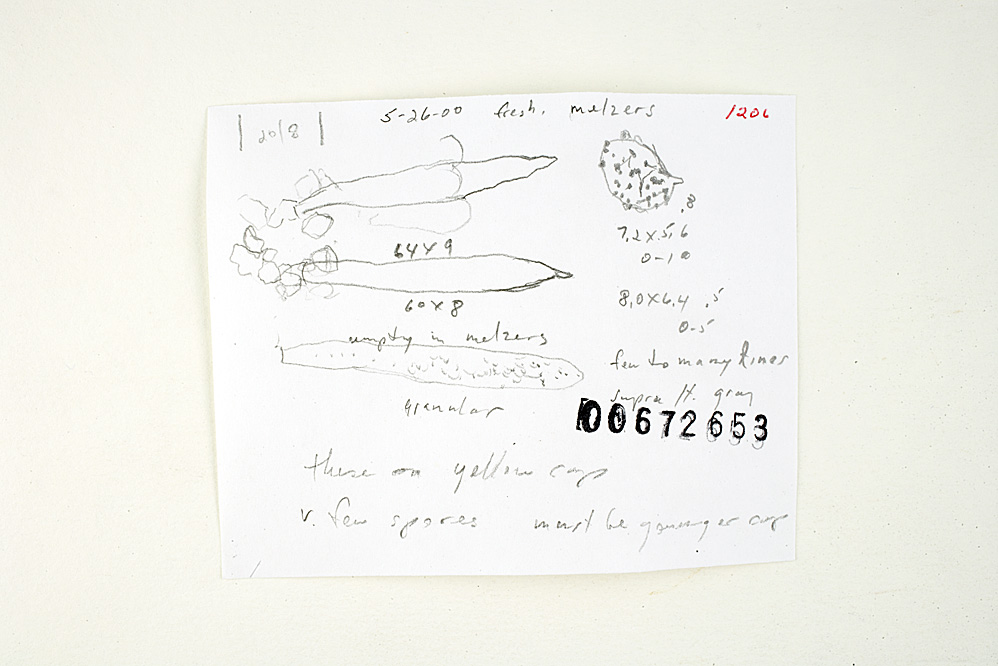 5-26-00 fresh. melzers
1206
| 20/8 |
64 x 9
60 x 8
empty in melzers
granular
.8
7.2 x 5.6
0-10
8.0 x 6.4 .5
0-5
few to many lines
supra H. gray
00672653
these on yellow cap
v. few spores must be younger cap